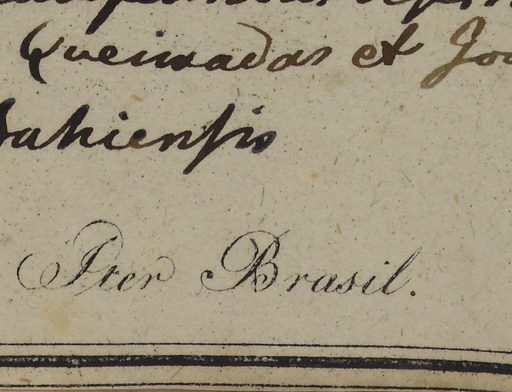 Queimadas et
Bahiensis
Iter Brasil.